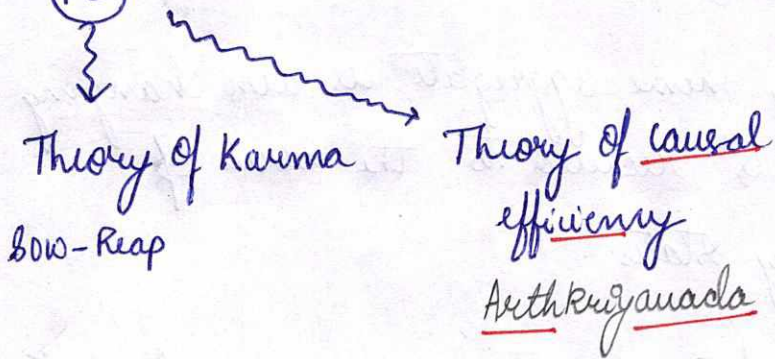 Theory of Karma
Sow-Reap
Theory of causal
efficiency
Arthkriyavada